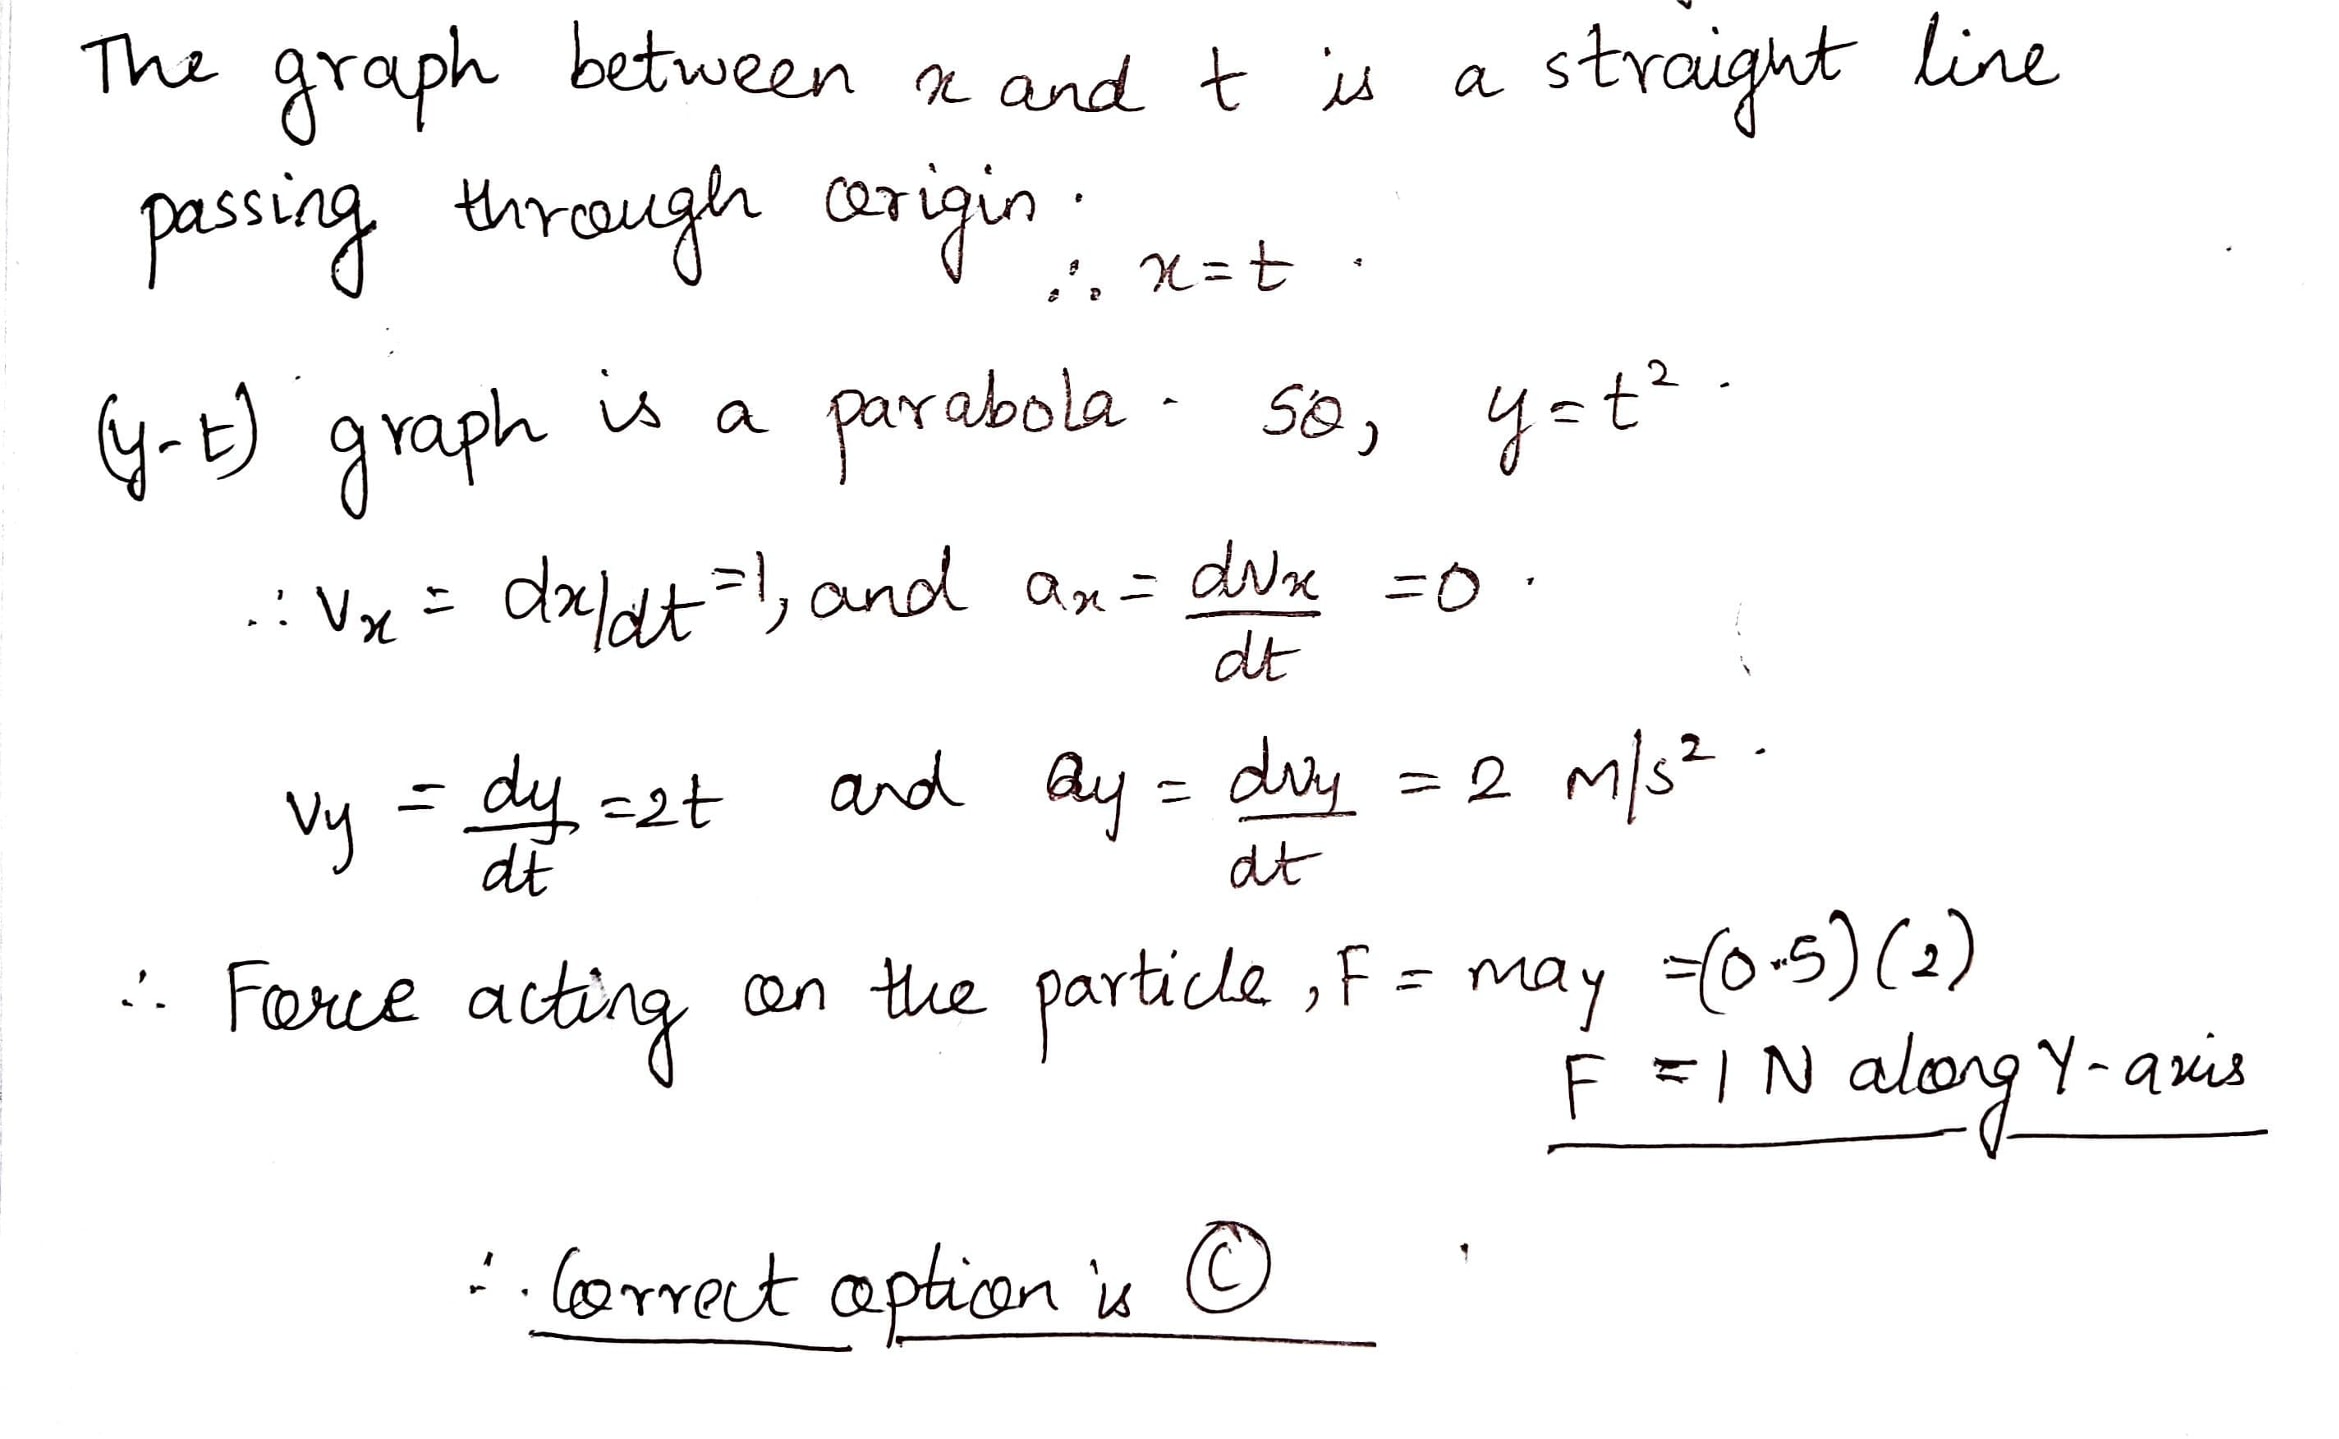 The graph between x and t is a straight line
passing through origin.
∴ x=t.
(y-t) graph is a parabola. So, y=t².
∴ Vx = dx/dt=1, and ax = dvx/dt =0.
Vy = dy/dt =2t and ay = dvy/dt = 2 m/s².
∴ Force acting on the particle, F = may =(0.5)(2)
F =1 N along Y-axis
∴ Correct option is Ⓒ